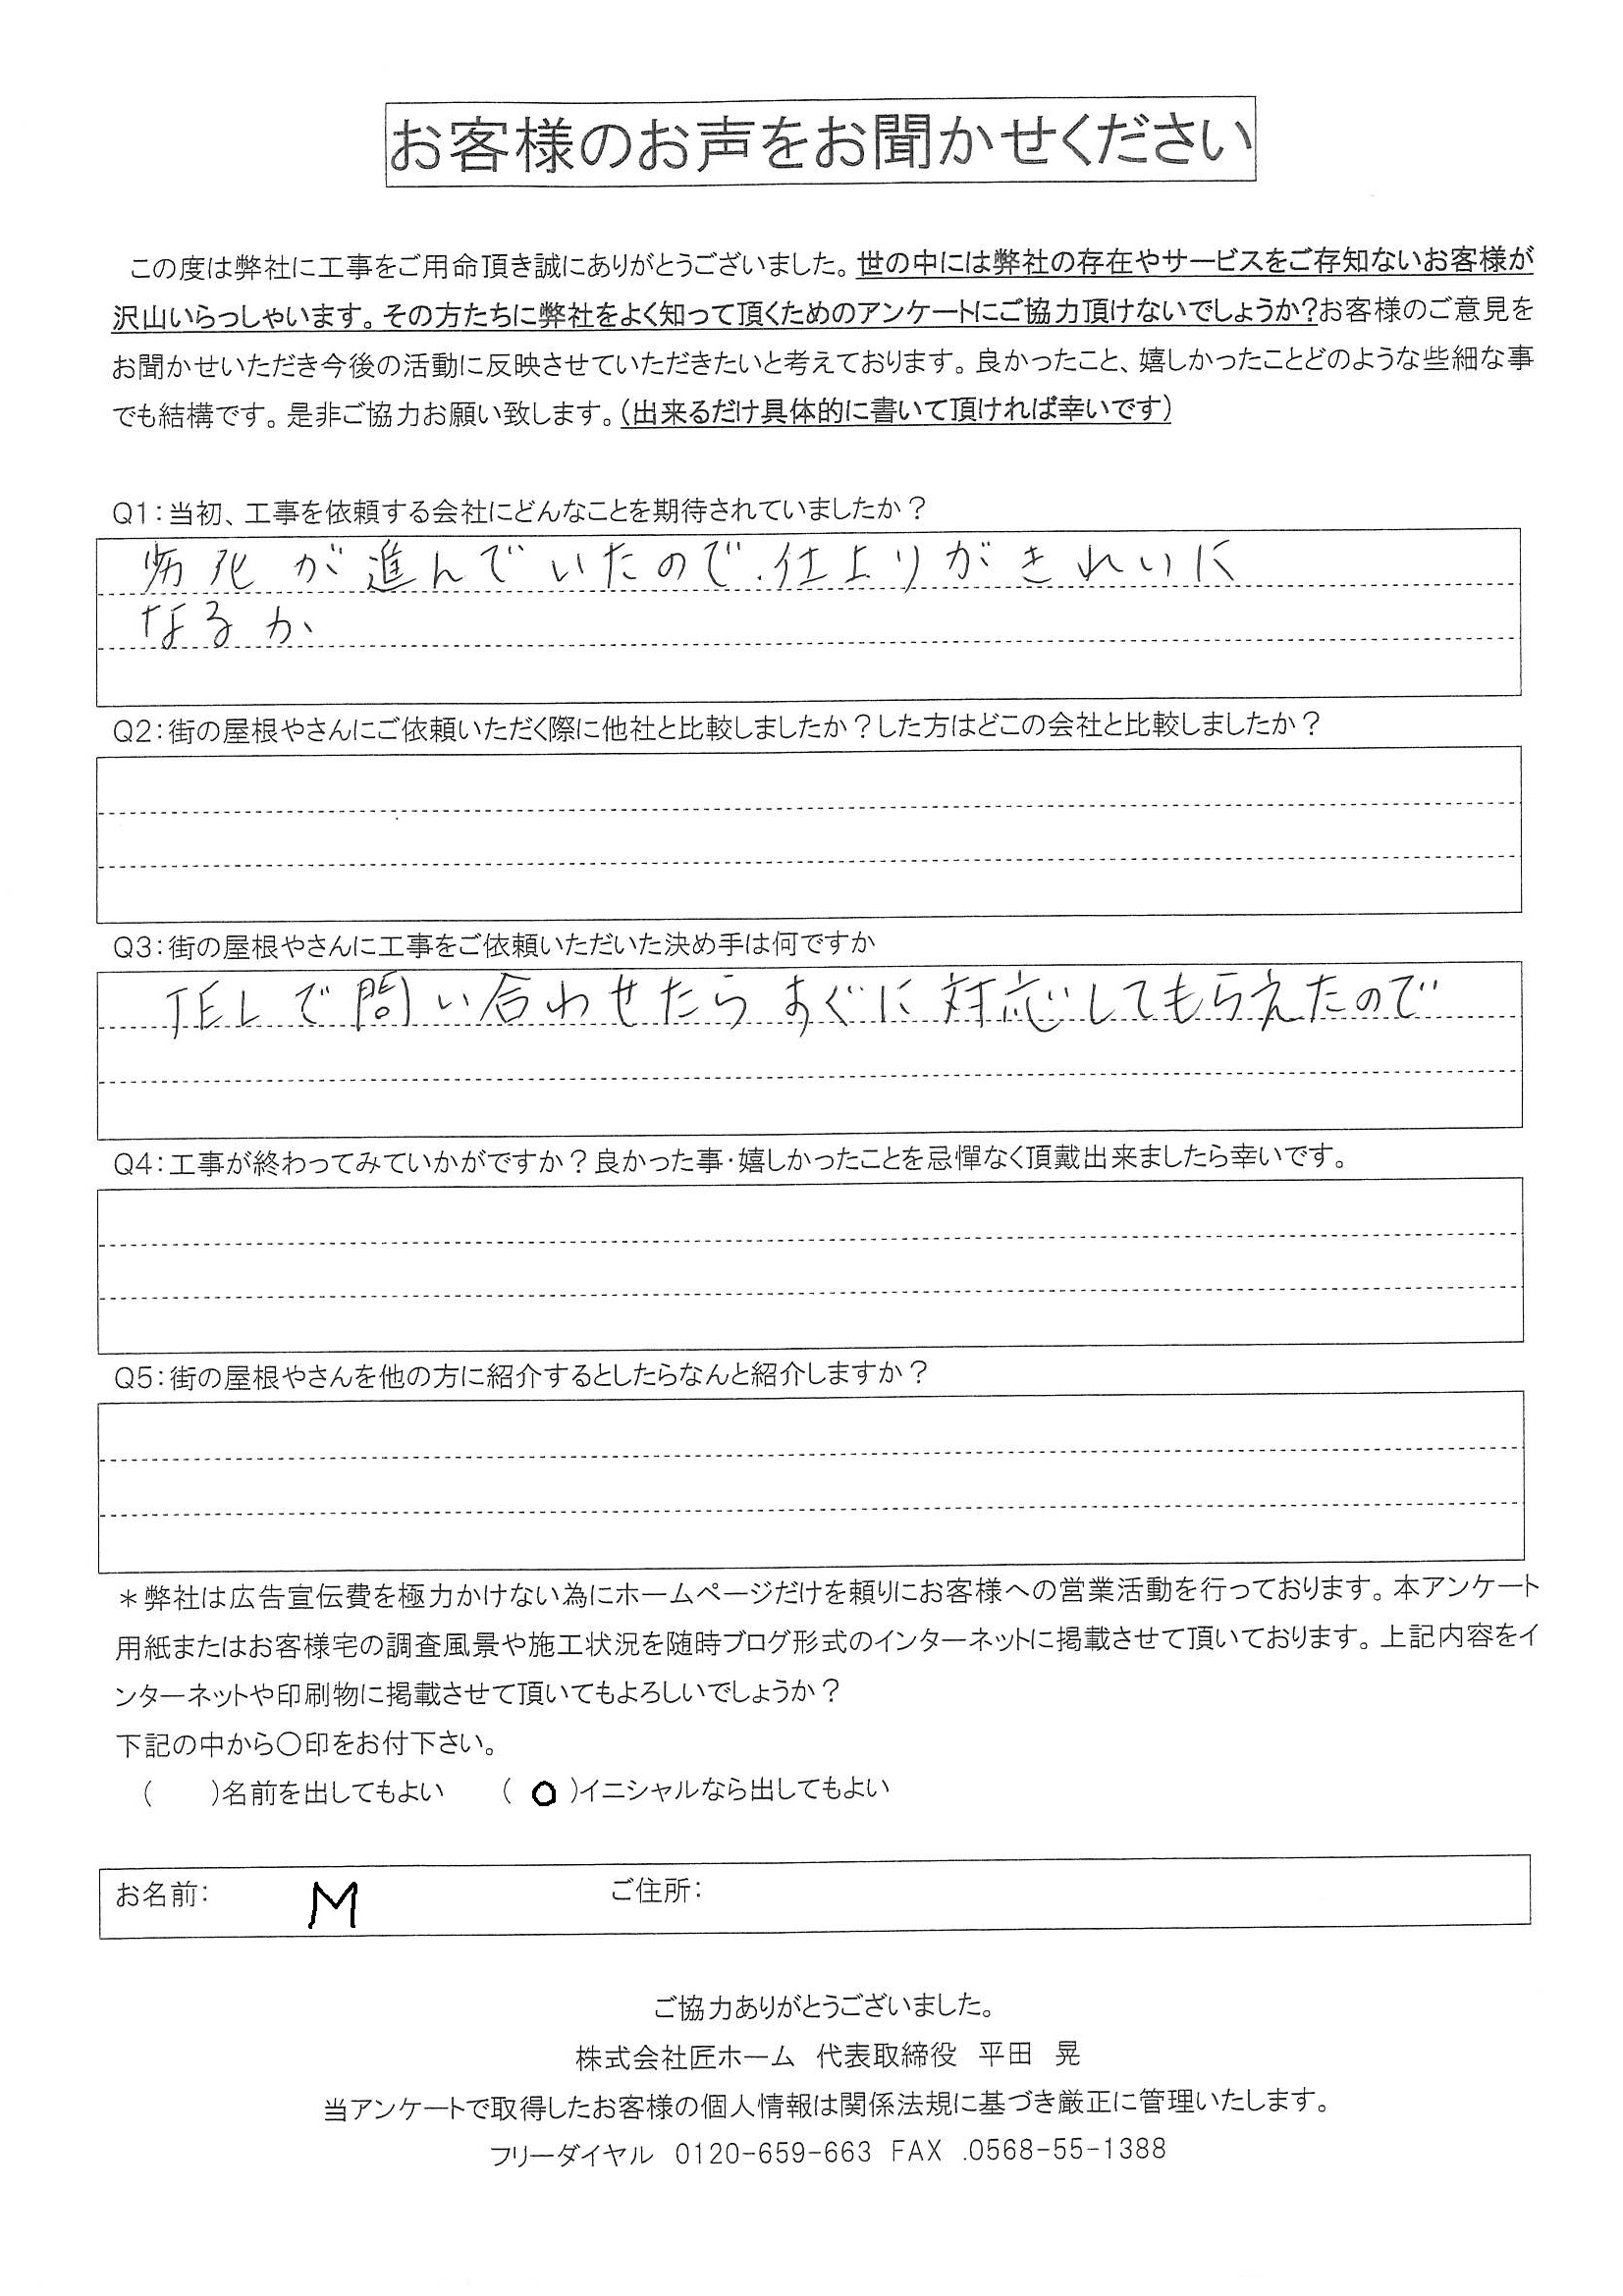 お客様のお声をお聞かせください
この度は弊社に工事をご用命頂き誠にありがとうございました。世の中には弊社の存在やサービスをご存知ないお客様が
沢山いらっしゃいます。その方たちに弊社をよく知って頂くためのアンケートにご協力頂けないでしょうか?お客様のご意見を
お聞かせいただき今後の活動に反映させていただきたいと考えております。良かったこと、嬉しかったことどのような些細な事
でも結構です。是非ご協力お願い致します。(出来るだけ具体的に書いて頂ければ幸いです)
Q1:当初、工事を依頼する会社にどんなことを期待されていましたか?
劣化が進んでいたので、仕上りがきれいに
なるか
Q2:街の屋根やさんにご依頼いただく際に他社と比較しましたか?した方はどこの会社と比較しましたか?
Q3:街の屋根やさんに工事をご依頼いただいた決め手は何ですか
TELで問い合わせたらすぐに対応してもらえたので
Q4:工事が終わってみていかがですか?良かった事・嬉しかったことを忌憚なく頂戴出来ましたら幸いです。
Q5:街の屋根やさんを他の方に紹介するとしたらなんと紹介しますか?
*弊社は広告宣伝費を極力かけない為にホームページだけを頼りにお客様への営業活動を行っております。本アンケート
用紙またはお客様宅の調査風景や施工状況を随時ブログ形式のインターネットに掲載させて頂いております。上記内容をイ
ンターネットや印刷物に掲載させて頂いてもよろしいでしょうか?
下記の中から〇印をお付下さい。
( )名前を出してもよい ( O )イニシャルなら出してもよい
お名前: M ご住所:
ご協力ありがとうございました。
株式会社匠ホーム 代表取締役 平田 晃
当アンケートで取得したお客様の個人情報は関係法規に基づき厳正に管理いたします。
フリーダイヤル 0120-659-663 FAX .0568-55-1388